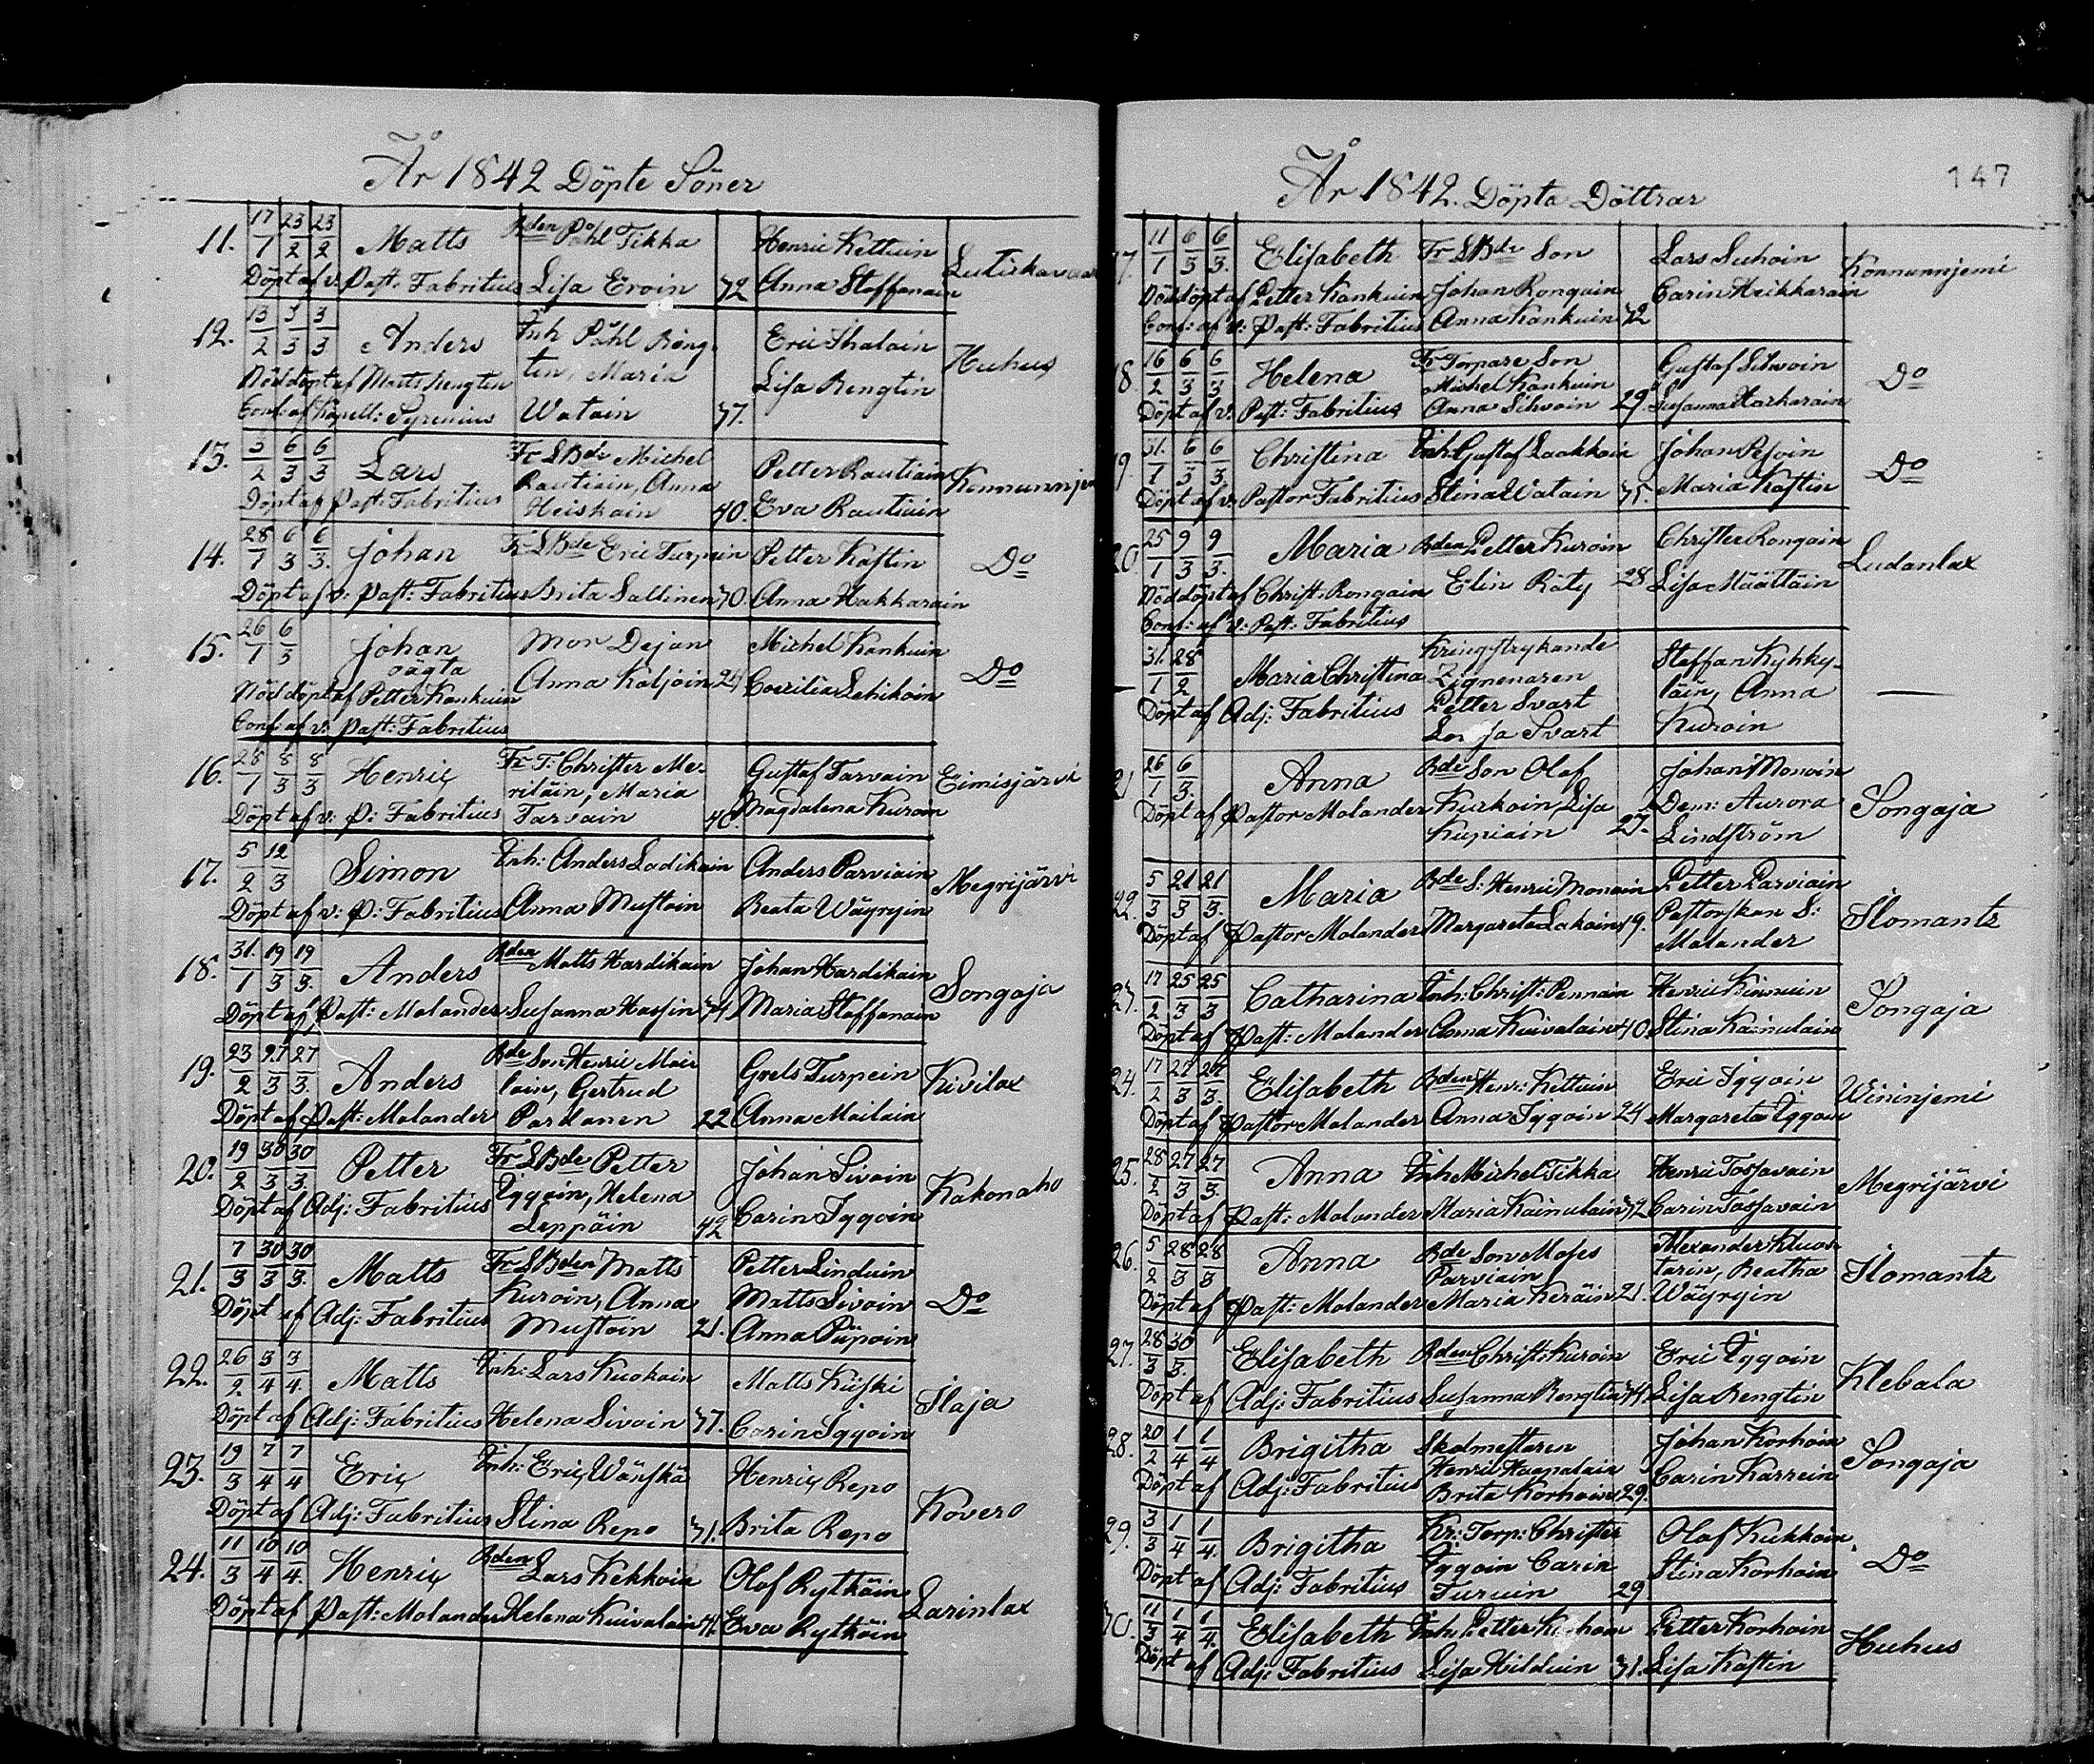 År 1842 Döpte Söner
11. 17/1 23/2 23/2 Matts Bden Påhl Tikka Henric Kettuin
Döpt af v: Past: Fabritius Lisa Eroin 32 Anna Staffanain
12. 13/2 3/3 3/3 Anders Inh Påhl Reng- Eric Ihalain Huhus
Nöddöpt af Matts Rengten ten, Maria Lisa Rengtin
Conf: af Kapell: Syrenius Watain 37.
13. 3/2 6/3 6/3 Lars Fr SBde Michel Petter Rautiain Konnunnjemi
Döpt af Past: Fabritius Rautiain, Anna
Heiskain 40. Eva Rautiain
14. 28/1 6/3 6/3. Johan Fr SBde Eric Turpein Petter Kastin Do
Döpt af v: Past: Fabritius Brita Sallinen 30. Anna Hakkarain
15. 26/1 6/3 Johan Mor Dejan Michel Kankuin Do
oägta Anna Koljoin 24 Coecilia Lehikoin
Nöddöpt af Petter Kankuin
Conf: af v: Past: Fabritius
16. 28/1 8/3 8/3 Henric Fr T: Christer Me- Gustaf Tarvain Eimisjärvi
riläin, Maria Magdalena Kuroin
Döpt af v: P: Fabritius Tarvain 40.
17. 5/2 12/3 Simon Inh: Anders Ladikain Anders Parviain Megrijärvi
Döpt af v: P: Fabritius Anna Mustoin Beata Wäyryin
18. 31./1 19/3 19/3. Anders Bden Matts Hardikain Johan Hardikain Songaja
Döpt af Past: Molander Susanna Hassin 34 Maria Staffanain
19. 23/2 27/3 27/3. Anders Bde Son Henric Mai- Grels Turpein Kivilax
lain, Gertrud
Döpt af Past: Molander Parkanen 22 Anna Mailain
20. 19/2 30/3 30/3. Petter Fr SBde Petter Johan Sivoin Kakonaho
Döpt af Adj: Fabritius Iggoin, Helena Carin Iggoin
Leppäin 42
21. 7/3 30/3 30/3. Matts Fr SBden Matts Petter Linduin Do
Kuroin, Anna Matts Sivoin
Döpt af Adj: Fabritius Mustoin 21. Anna Piipoin
22. 26/2 3/4 3/4. Matts Inh: Lars Kuokain Matts Kiiski Ilaja
Döpt af Adj: Fabritius Helena Sivoin 37. Carin Iggoin
23. 19/3 7/4 7/4 Eric Inh: Eric Wänskä Henric Repo Kovero
Döpt af Adj: Fabritius Stina Repo 31. Brita Repo
24. 11/3 10/4 10/4. Henric Bden Lars Kekkoin Olof Rytköin Larinlax
Döpt af Past: Molander Helena Kuivalain Eva Rytköin
147
År 1842. Döpta Döttrar
17. 11/1 6/3 6/3. Elisabeth Fr SBde Son Lars Suhoin Konnunnjemi
Nöddöpt af Petter Kankuin Johan Rongain Carin Heikkarain
Conf: af v: Past: Fabritius Anna Kankuin 32
18. 16/2 6/3 6/3 Helena Kr Torpare Son Gustaf Silvoin Do
Michel Kankuin
Döpt af v: Past: Fabritius Anna Silvoin 29. Susanna Harkarain
19. 31./1 6/3 6/3. Christina Inh: Gustaf Laakkoin Johan Pesoin Do
Döpt af v: Pastor Fabritius Stina Watain 35. Maria Kastin
20 25/1 9/3 9/3. Maria Bden Petter Kuroin Christer Rongain Ludanlax
Nöddöpt af Christ: Rongain Elin Räty 28 Lisa Määttäin
Conf: af v: Past: Fabritius
— 31./1 28/2 Maria Christina Kringstrykande Staffan Kyhky- —
Zigenaren läin, Anna
Döpt af Adj: Fabritius Petter Svart Kuroin
Svart
21 26/1 6/3. Anna Bde Son Olof Johan Monoin Songaja
Döpt af Pastor Molander Kurkoin, Lisa Dem: Aurora
Kupiain 27. Lindström
22. 5/3 21/3 21/3. Maria Bde S: Henric Monoin Petter Parviain Ilomantz
Döpt af Pastor Molander Margareta Lakain 19. Pastorskan S:
Molander
23. 17/2 25/3 25/3 Catharina Inh: Christ: Pennain Henric Kinnuin Songaja
Döpt af Past: Molander Anna Kuivalain 40. Stina Kainulain
24. 17/2 27/3 27/3. Elisabeth Bden Henr: Kettuin Eric Iggoin Wininjemi
Döpt af Pastor Molander Anna Iggoin 24 Margareta Iggoin
25. 28/2 27/3 27/3. Anna Inh Michel Tikka Henric Tossavain Megrijärvi
Döpt af Past: Molander Maria Kainulain 32 Carin Tossavain
26. 5/2 28/3 28/3 Anna Bde Son Moses Alexander Kluas- Ilomantz
Parviain tarin, Beatha
Döpt af Past: Molander Maria Keräin 21. Wäyryin
27. 28/3 30/3. Elisabeth Bden Christ: Kuroin Eric Iggoin Klebala
Döpt af Adj: Fabritius Susanna Rengtin 34 Lisa Rengtin
28. 20/2 1/4 1/4 Brigitha Skolmästaren Johan Korhoin Songaja
Henric Haapalain Carin Karrein
Döpt af Adj: Fabritius Brita Korhoin 29.
29. 3/3 1/4 1/4. Brigitha Kr: Torp: Christer Olof Kukkoin Do
Iggoin Carin Stina Korhoin
Döpt af Adj: Fabritius Turuin 29
30. 11/3 1/4 1/4. Elisabeth Inh: Petter Korhoin Petter Korhoin Huhus
Döpt af Adj: Fabritius Lisa Hilduin 31. Lisa Kastin